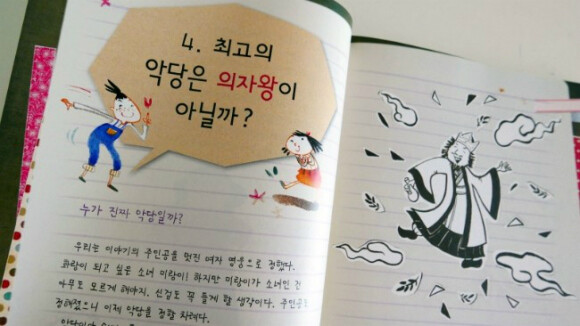 4. 최고의
악당은 의자왕이
아닐까?
누가 진짜 악당일까?
우리는 이야기의 주인공을 멋진 여자 영웅으로 정했다.
화랑이 되고 싶은 소녀 미랑이! 하지만 미랑이가 소녀인 건
아무도 모르게 해야지. 선덕도 꼭 돕게 할 생각이다. 주인공도
정해졌으니 이제 악당을 정할 차례다.